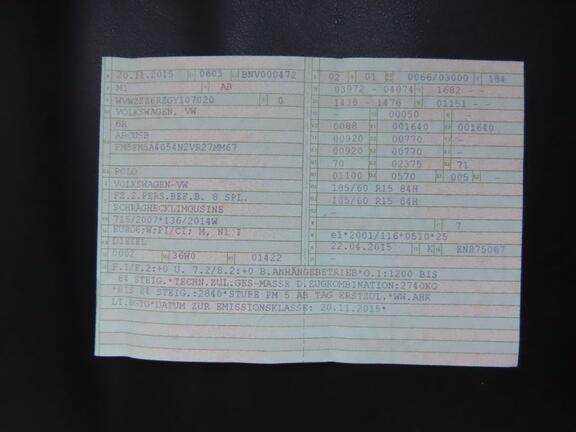 20.11.2015 0603 BNV000472
M1 AB
WVWZZZ6RZGY107020 0
VOLKSWAGEN, VW
6R
ABCUSB
FM5FM5A4054N2VR27MM67
POLO
VOLKSWAGEN-VW
FZ.Z.PERS.BEF.B. 8 SPL.
SCHRÄGHECKLIMOUSINE
715/2007*136/2014W
EURO6;W;PI/CI; M, N1 I
DIESEL
0002 36W0 01422
02 01 0066/03000 184
03972 - 04074 1682 - -
1438 - 1476 01151 - -
- 00050 -
0088 001640 001640
00920 00770 -
00920 00770 -
70 02375 71
01100 0570 005 -
185/60 R15 84H
185/60 R15 84H
-
- 7
e1*2001/116*0510*25
22.04.2015 K EN875087
-
F.1/F.2:+0 U. 7.2/8.2:+0 B.ANHÄNGEBETRIEB*O.1:1200 BIS
8% STEIG.*TECHN.ZUL.GES-MASSE D.ZUGKOMBINATION:2740KG
*BIS 8% STEIG.:2840*STUFE PM 5 AB TAG ERSTZUL.*WW.AHK
LT.EGTG*DATUM ZUR EMISSIONSKLASSE: 20.11.2015*